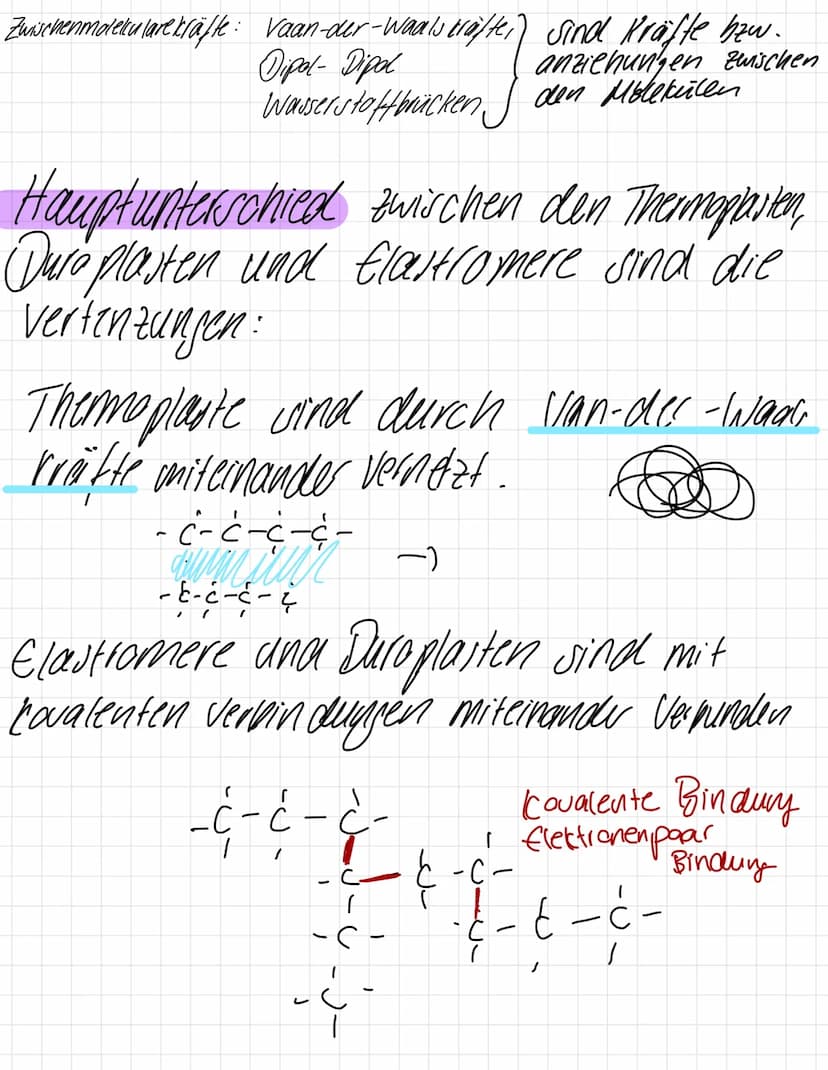 Zwischenmolekularekräfte: Vaan-der-Waalskräfte,
Dipol-Dipol
Wasserstoffbrücken
sind Kräfte bzw.
anziehungen zwischen
den Molekülen
Hauptunterschied zwischen den Thermoplasten,
Duroplasten und Elastromere sind die
Thermoplaste sind durch Van-der-Waals
kräfte miteinander vernetzt.
- C - C - C - C -
- C - C - C - C
Elastromere und Duroplasten sind mit
kovalenten verbindungen miteinander Verbunden
kovalente Bindung
Elektronenpaar
Bindung
- C - C - C -
- C - C - C -
- C -
- C - C - C -
- C -